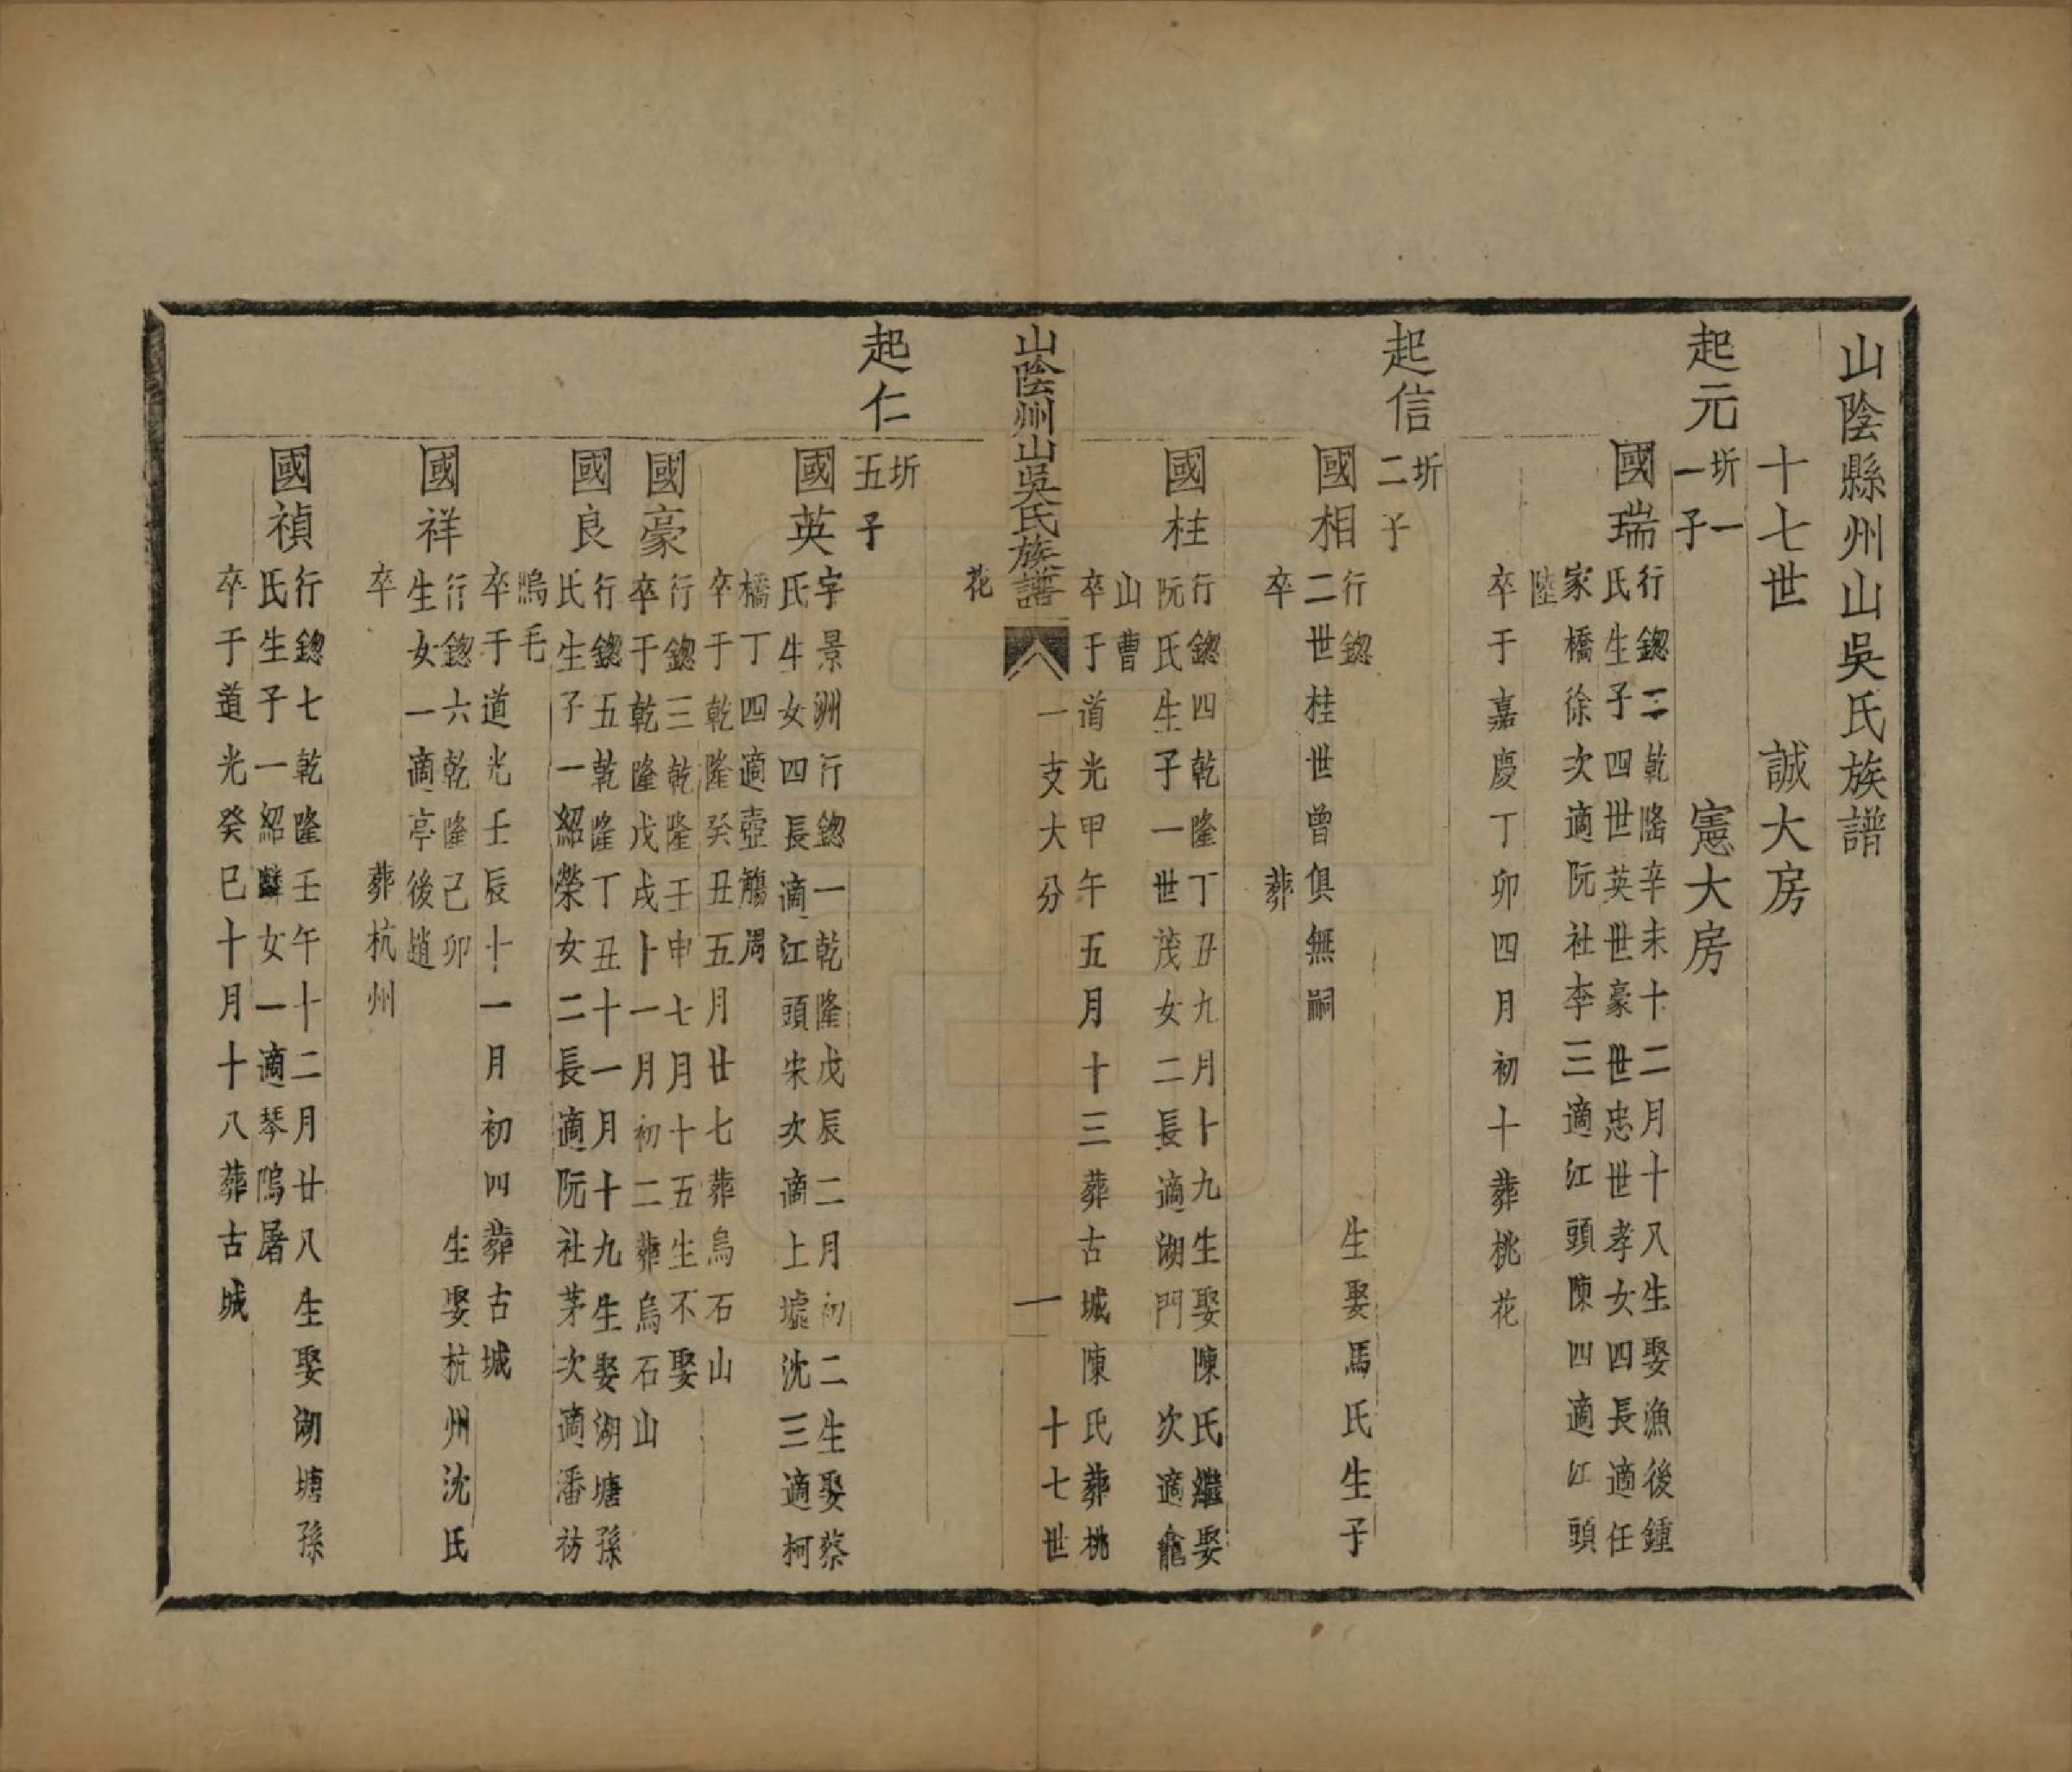 山陰縣州山吳氏族譜
十七世　誠大房
憲大房
起元
圻一
一子
國瑞
行鍃二乾隆辛未十二月十八生娶漁後鍾
氏生子四世英世豪世忠世孝女四長適任
家橋徐次適阮社李三適江頭陳四適江頭
陸
卒于嘉慶丁卯四月初十葬桃花
起信
圻
二子
國相
行鍃　生娶馬氏生子
二世桂世曾俱無嗣
卒　葬
國柱
行鍃四乾隆丁丑九月十九生娶陳氏繼娶
阮氏生子一世茂女二長適湖門　次適龕
山曹
卒于道光甲午五月十三葬古城陳氏葬桃
一支大分　十七世
山陰州山吳氏族譜　一
花
起仁
圻
五子
國英
字景洲行鍃一乾隆戊辰二月初二生娶蔡
氏生女四長適江頭宋次適上墟沈三適柯
橋丁四適壺觴周
卒于乾隆癸丑五月廿七葬烏石山
國豪
行鍃三乾隆壬申七月十五生不娶
卒于乾隆戊戌十一月初二葬烏石山
國良
行鍃五乾隆丁丑十一月十九生娶湖塘孫
氏生子一紹榮女二長適阮社茅次適潘彷
鳴毛
卒于道光壬辰十一月初四葬古城
國祥
行鍃六乾隆己卯　生娶杭州沈氏
生女一適亭後趙
卒　葬杭州
國禎
行鍃七乾隆壬午十二月廿八生娶湖塘孫
氏生子一紹麟女一適琴鳴屠
卒于道光癸巳十月十八葬古城